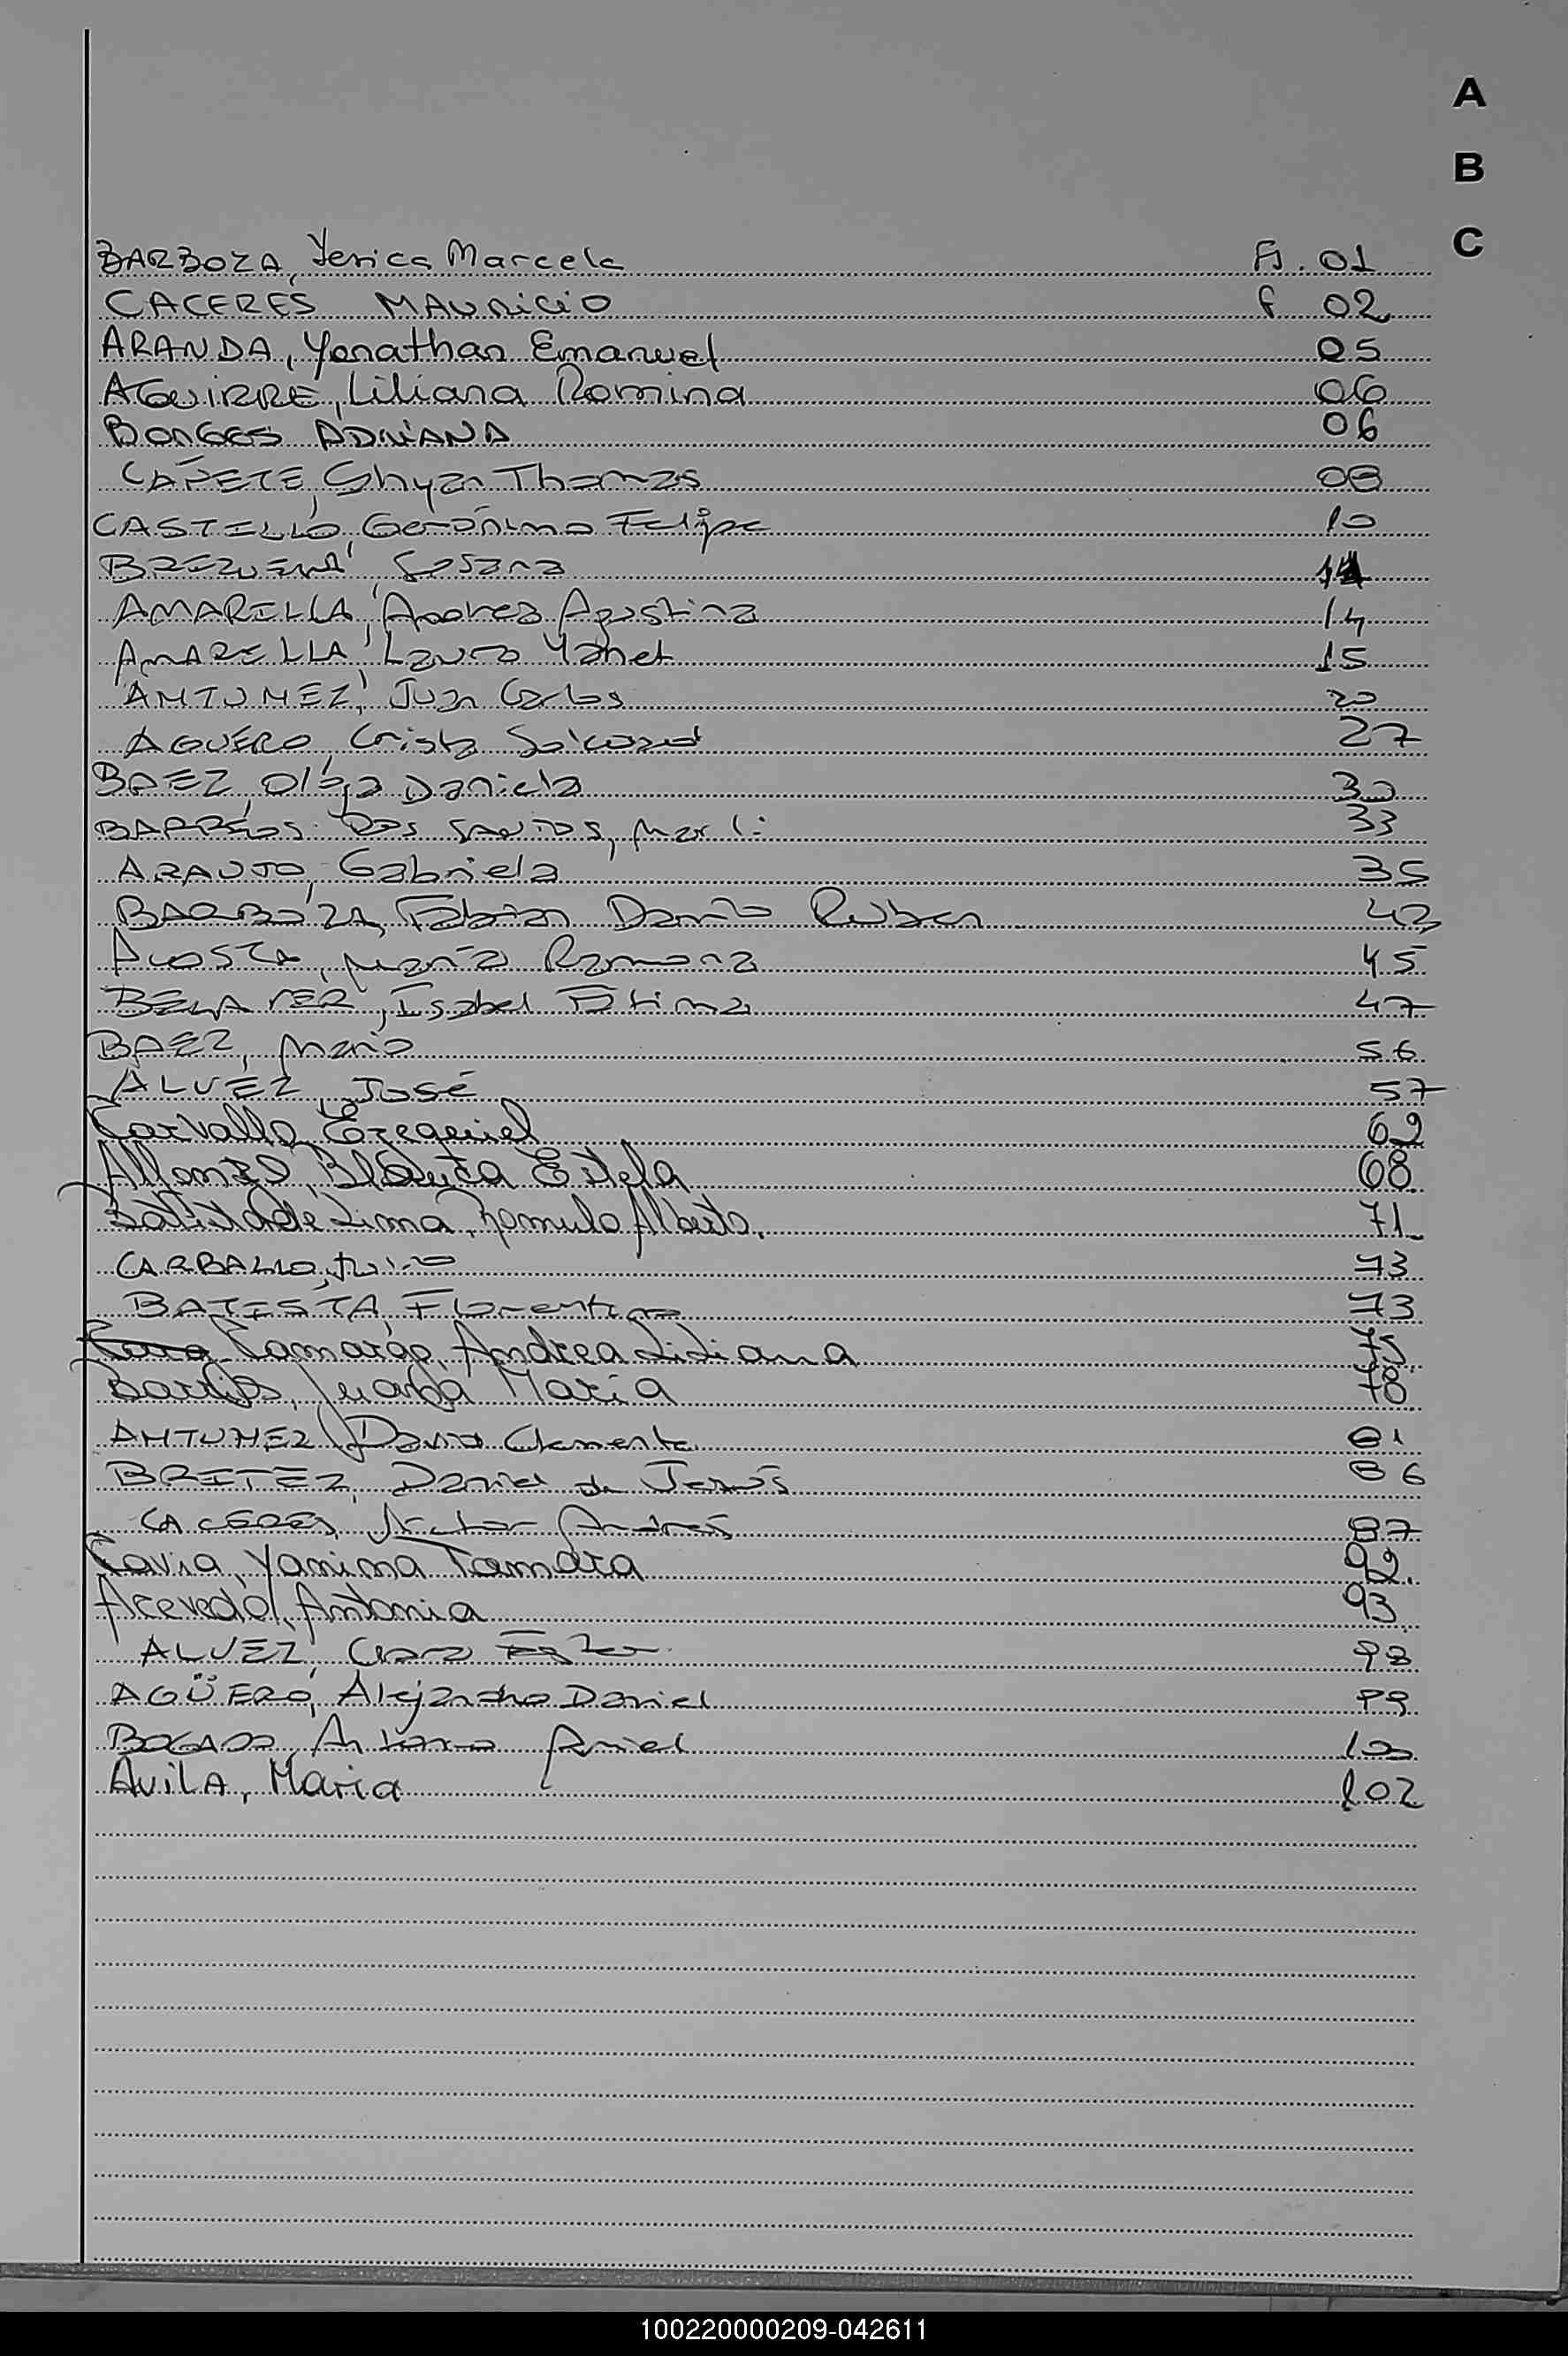 A
B
C
BARBOZA, Yesica Marcela Fl. 01
CACERES MAURICIO f 02
ARANDA, Yonathan Emanuel 05
AGUIRRE, Liliana Romina 06
BORGES ADRIANA 06
CAÑETE, Ghyan Thomas 08
CASTILLO, Gerónimo Felipe 10
Susana
AMARILLA, Andrea Agustina 14
AMARILLA, Laura Yanet 15
ANTUNEZ, Juan Carlos 20
AGUERO, Crista 27
BAEZ, Olga Daniela 30
BARRIOS Dos SANTOS, Marli 33
ARAUJO, Gabriela 35
BARBOZA, Fabian Darío Ruben 42
Acosta, María Ramona 45
Isabel Fátima 47
BAEZ, Mario 56
ALVEZ, José 57
Carvallo, Ezequiel 62
Alfonzo, Blanca Estela 68
Batista de Lima, Romulo Alberto. 71
CARBALLO, 73
BATISTA, Florentino 73
Camargo, Andrea Liliana 75
Barrios, Juana Maria 78
ANTUNEZ, David Clemente 81
BRITEZ, Daniel de Jesús 86
CACERES, Andrés 87
Cavia, Yanina Tamara 92.
Acevedo, Antonia 93
ALVEZ, Clara Ester 98
AGÜERO, Alejandro Daniel 99
BOGADO, Antonio Ariel 100
AVILA, Maria 102
100220000209-042611